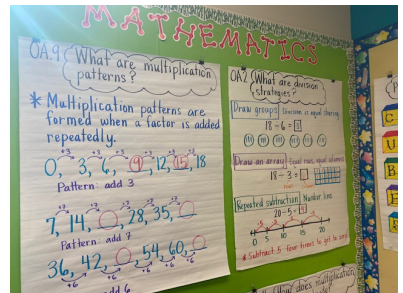 MATHEMATICS
OA.9 What are multiplication
patterns?
* Multiplication patterns are
formed when a factor is added
repeatedly.
+3 +3 +3
0, 3, 6, 9, 12, 15, 18
Pattern: add 3
7, 14, 28, 35,
Pattern: add 7
36, 42, 54, 60,
+6 +6 +6
add 6
OA.2 What are division
strategies?
Draw groups Division is equal sharing
18 ÷ 6 = 3
Draw an array Equal rows, equal columns
18 ÷ 3 =
Repeated subtraction Number line
20 ÷ 5 = 4
0 5 10 15 20
* Subtract 5 four times to get to zero
How does multiplication
C
U
B
E